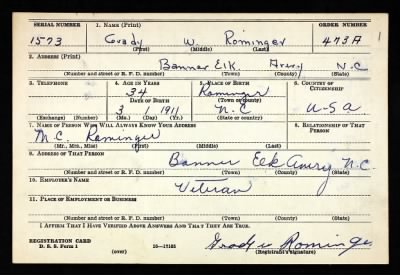 SERIAL NUMBER 1. NAME (Print) ORDER NUMBER
1573 Grady W. Rominger 473A 1
(First) (Middle) (Last)
2. ADDRESS (Print)
Banner Elk. Avery N.C
(Number and street or R. F. D. number) (Town) (County) (State)
3. TELEPHONE 4. AGE IN YEARS 5. PLACE OF BIRTH 6. COUNTRY OF CITIZENSHIP
34 Rominger
DATE OF BIRTH (Town or county)
3 1 1911 N.C U-SA
(Exchange) (Number) (Mo.) (Day) (Yr.) (State or country)
7. NAME OF PERSON WHO WILL ALWAYS KNOW YOUR ADDRESS 8. RELATIONSHIP OF THAT PERSON
M.C. Rominger
(Mr., Mrs., Miss) (First) (Middle) (Last)
9. ADDRESS OF THAT PERSON
Banner Elk Avery N.C
(Number and street or R. F. D. number) (Town) (County) (State)
10. EMPLOYER'S NAME
Veteran
11. PLACE OF EMPLOYMENT OR BUSINESS
(Number and street or R. F. D. number) (Town) (County) (State)
I AFFIRM THAT I HAVE VERIFIED ABOVE ANSWERS AND THAT THEY ARE TRUE.
REGISTRATION CARD
D. S. S. Form 1 (over) 16—17105 Grady w Rominger
(Registrant's signature)